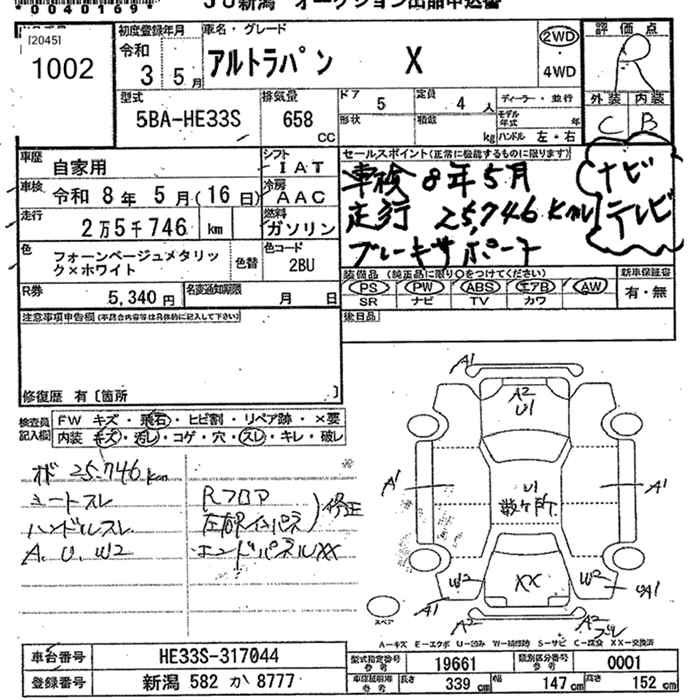 *0040169*
JU新潟 オークション出品申込書
[2045]
1002
初度登録年月
令和
3 5月
車名・グレード
アルトラパン X
2WD
4WD
評価点
R
外装 内装
C B
型式
5BA-HE33S
排気量
658
cc
ドア 5
定員 4人
形状
積載 kg
ディーラー・並行
モデル年式 年
ハンドル 左・右
車歴
自家用
シフト
IAT
車検
令和 8年 5月(16日)
冷房
AAC
走行
2万5千746 km
燃料
ガソリン
色
フォーンベージュメタリック×ホワイト
色替
色コード
2BU
R券
5,340円
名変通知期限
月 日
セールスポイント(正常に機能するものに限ります)
車検 8年5月
走行 25,746km
ブレーキサポート
ナビ
テレビ
装備品 (純正品に限り○をつけてください)
PS PW ABS エアB AW
SR ナビ TV カワ
新車保証書
有・無
後日品
注意事項申告欄(不具合内容等は具体的に記入して下さい)
修復歴 有〔箇所 〕
検査員記入欄
FW キズ・飛石・ヒビ割・リペア跡・×要
内装 キズ・汚レ・コゲ・穴・スレ・キレ・破レ
オド 25,746km
シートスレ
ハンドルスレ
A、U、W2
Rフロア
左右Rインパネ
エンドパネルXX
修正
A1
A2
U1
A1
U1
数ヶ所
A1
W2
XX
W2
A1
UA1
A2
A2
スレ
スペア
A-キズ E-エクボ U-凹み W-補修跡 S-サビ C-腐食 XX-交換済
車台番号
HE33S-317044
登録番号
新潟 582 か 8777
型式指定番号
参考
19661
類別区分番号
参考
0001
長さ 339 cm
幅 147 cm
高さ 152 cm